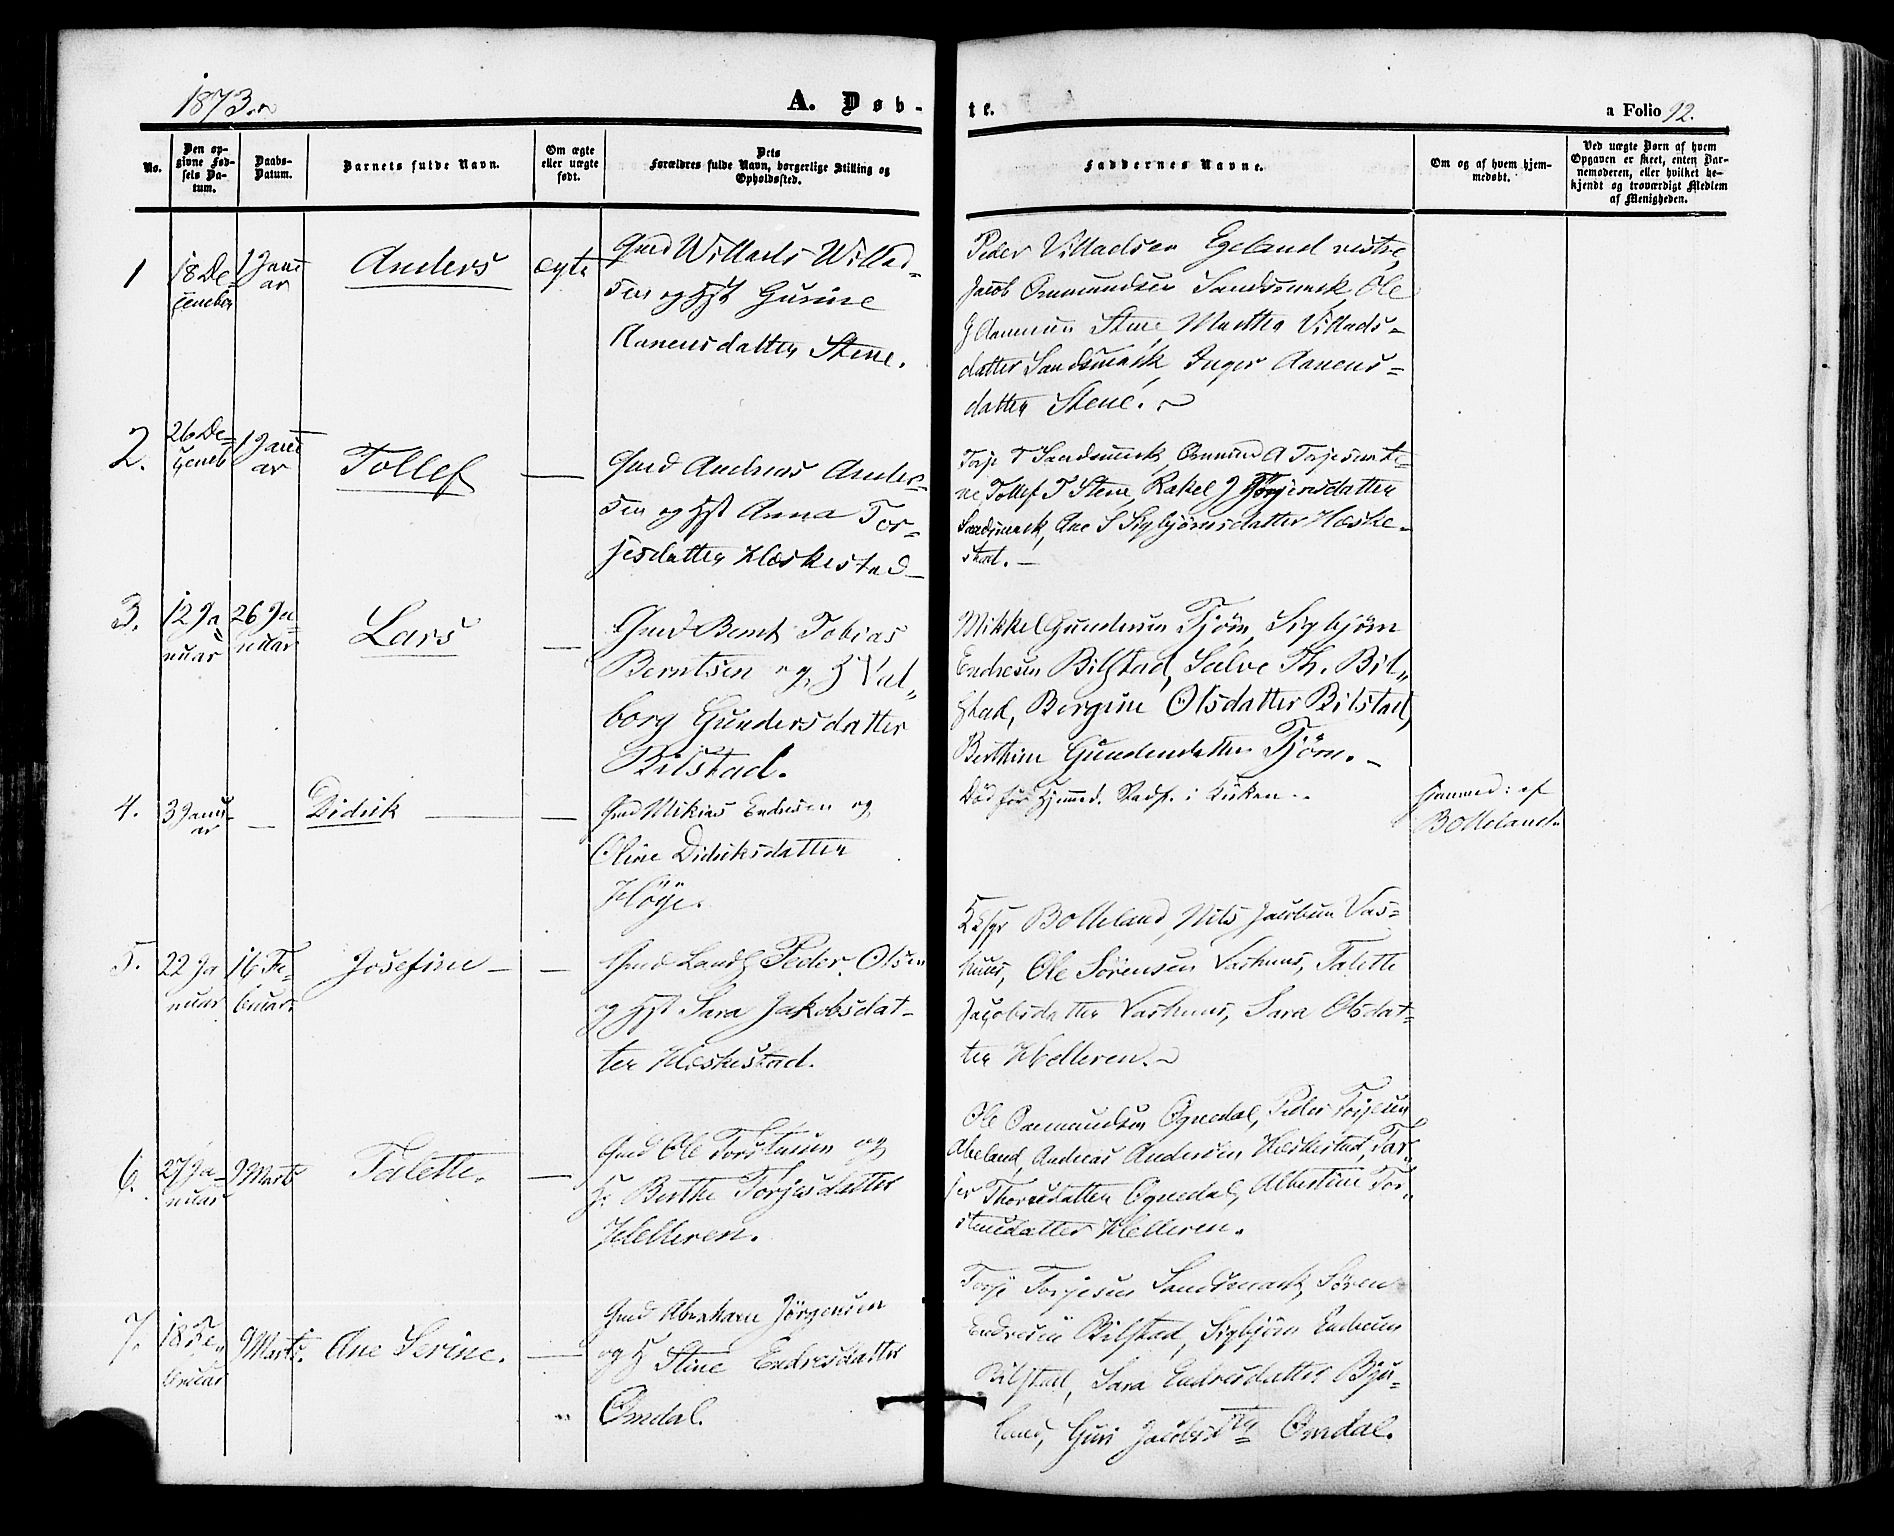 1873.
A. Døb-
te.
a Folio 92.
No.
Den op-
givne Fød-
sels Da-
tum.
Daabs-
Datum.
Barnets fulde Navn.
Om ægte
eller uægte
født.
Dets
Forældres fulde Navn, borgerlige Stilling og
Opholdssted.
Faddernes Navne.
Om og af hvem hjem-
medøbt.
Ved uægte Børn af hvem
Opgaven er skeet, enten Bar-
nemoderen, eller hvilket be-
kjendt og troværdigt Medlem
af Menigheden.
1
18 De-
cember
1 Janu
ar
Anders
egte
Gmd Willads Willad-
sen og Hst Gurine
Aanensdatter Stene.
Peder Villadsen Egeland vestre,
Jacob Osmundsen Sandsmark, Ole
G Aanensen Stene, Marthe Villads-
datter Sandsmark, Inger Aanens-
datter Stene.
2.
26 De-
cemb
1 Janu
ar
Tollef
—
Gmd Andreas Ander-
sen og Hst Anna Tor-
jesdatter Heskestad
Torje T Sandsmark, Osmund A Torjesen Ste-
ne Tollef T Stene, Rakel J Torjensdatter
Sandsmark, Ane S Sigbjørnsdatter Heske-
stad.
3.
12 Ja
nuar
26 Ja-
nuar
Lars
—
Gmd Bernt Tobias
Berntsen og H Val-
borg Gundersdatter
Bilstad.
Mikkel Gundersen Tjørn, Sigbjørn
Endresen Bilstad, Salve Th. Bil-
stad, Bergine Olsdatter Bilstad,
Berthine Gundersdatter Tjørn.
4.
3 Janu-
ar
—
Didrik
—
Gmd Mikias Endresen og
Oline Didriksdatter
Høye.
Død før Hjemmed. Stadf. i Kirken.
hjemmed: af
Bolleland.
5.
22 Ja
nuar
16 Fe-
bruar
Josefine
—
Gmd Landh Peder Olsen
og Hst Sara Jakobsdat-
ter Heskestad.
Bolleland, Nils Jacobsen Vas-
huus, Ole Sørensen Vashuus, Talette
Jacobsdatter Vashuus, Sara Olsdat-
ter Helleren.
6.
27 Ja-
nuar
9 Marts
Talette.
—
Gmd Ole Torstensen og
H: Berthe Torjesdatter
Helleren.
Ole Osmundsen Øgnedal, Peder Torjesen
Abeland, Andreas Andersen Heskestad, Tor-
jer Thorsdatter Øgnedal, Albertine Tor-
stensdatter Helleren.
7.
18 Fe-
bruar
9 Marts.
Ane Serine.
—
Gmd Abraham Jørgensen
og H Stine Endresdatter
Omdal.
Torje Torjesen Sandsmark, Søren
Endresen Bilstad, Sigbjørn Endresen
Bilstad, Sara Endresdatter Bju-
land, Guri Jacobsdtr Omdal.